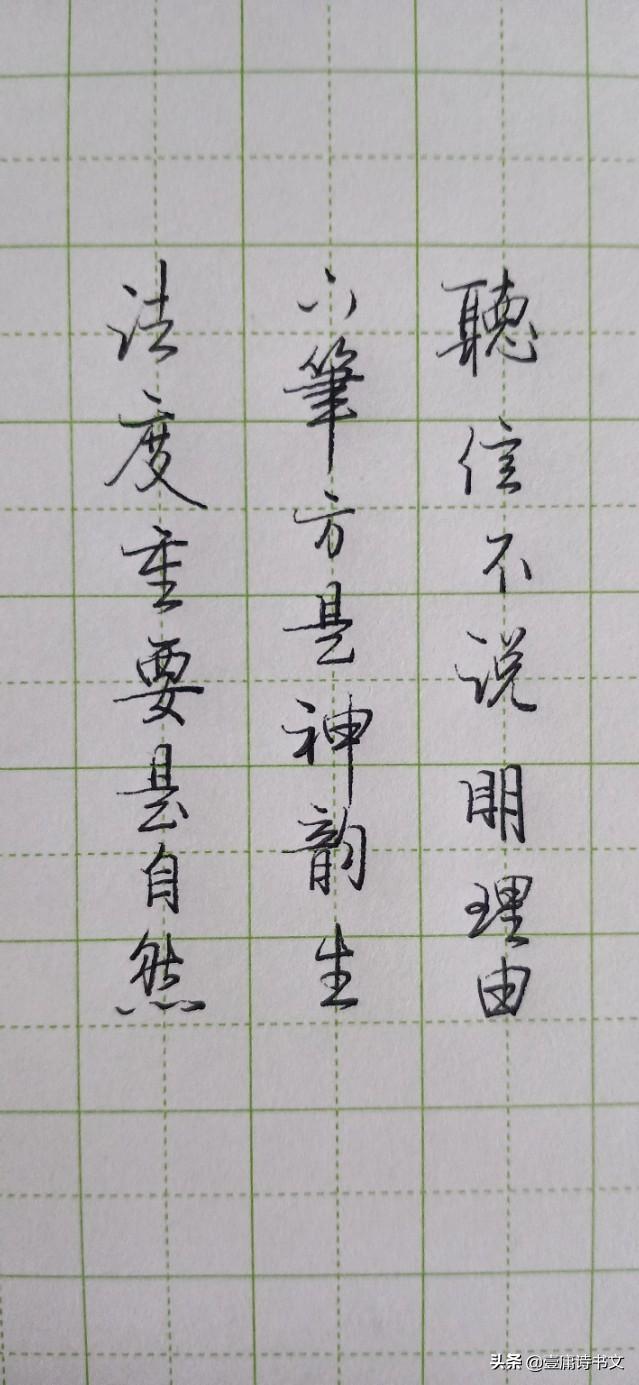 聽信不说明理由
下筆方是神韵生
法度重要是自然
头条 @壹庸诗书文